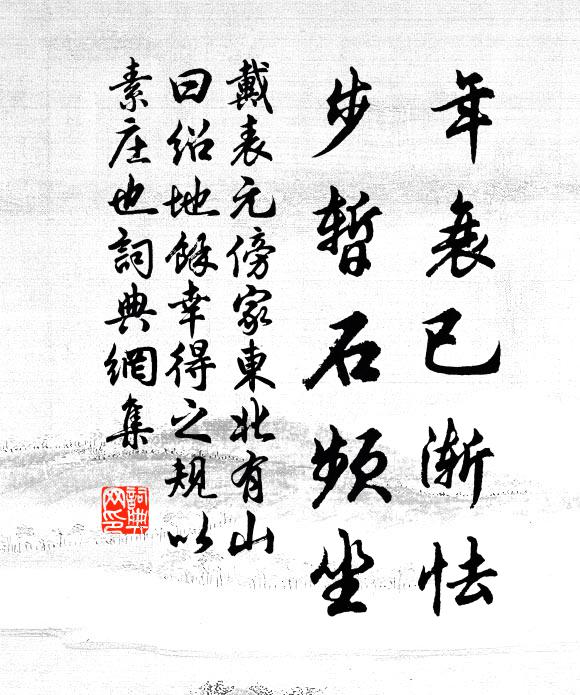 年衰已渐怯
步暂石频坐
戴表元傍家東北有山
曰绍地餘幸得之規以
素庄也詞典網集
詞典網印